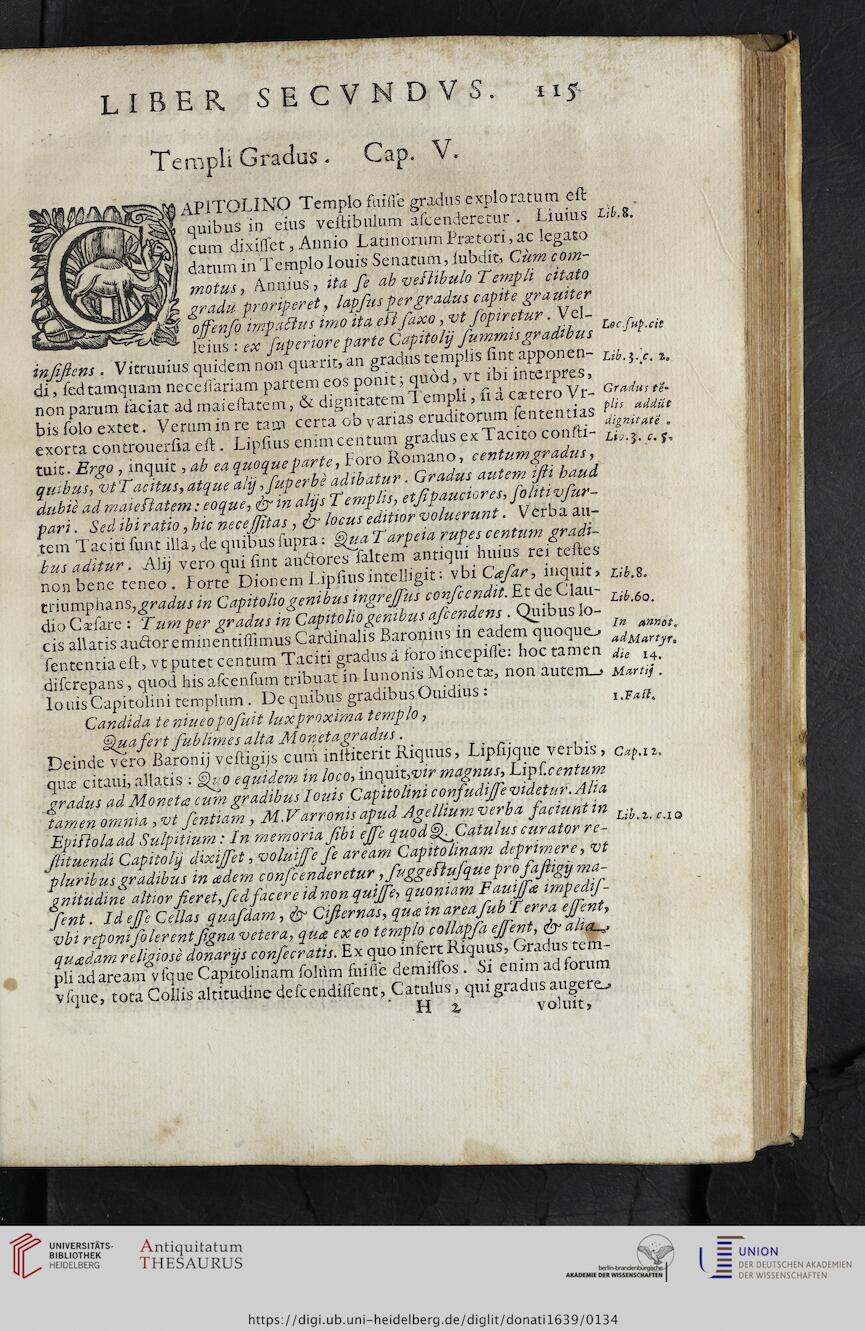 LIBER SECVNDVS. 115
Templi Gradus. Cap. V.
CAPITOLINO Templo fuisse gradus exploratum est
quibus in eius vestibulum ascenderetur. Liuius
Lib.8.
cum dixisset, Annio Latinorum Prætori, ac legato
datum in Templo Iouis Senatum, subdit, Cùm com-
motus, Annius, ita se ab vestibulo Templi citato
gradu proriperet, lapsus per gradus capite grauiter
offenso impactus imo ita est saxo, vt sopiretur. Vel-
Loc sup.cit
leius: ex superiore parte Capitolij summis gradibus
insistens. Vitruuius quidem non quærit, an gradus templis sint apponen-
Lib.3.c. 2.
di, sed tamquam necessariam partem eos ponit; quòd, vt ibi interpres,
non parum faciat ad maiestatem, & dignitatem Templi, si à cætero Vr-
Gradus tē-
plis addūt
bis solo extet. Verum in re tam certa ob varias eruditorum sententias
dignitatē.
exorta controuersia est. Lipsius enim centum gradus ex Tacito consti-
Lib.3. c.5.
tuit. Ergo, inquit, ab ea quoque parte, Foro Romano, centum gradus,
quibus, vt Tacitus, atque alij, superbè adibatur. Gradus autem isti haud
dubiè ad maiestatem: eoque, & in alijs Templis, etsi pauciores, soliti vsur-
pari. Sed ibi ratio, hic necessitas, & locus editior voluerunt. Verba au-
tem Taciti sunt illa, de quibus supra: Qua Tarpeia rupes centum gradi-
bus aditur. Alij vero qui sint auctores saltem antiqui huius rei testes
non bene teneo. Forte Dionem Lipsius intelligit: vbi Cæsar, inquit,
Lib.8.
triumphans, gradus in Capitolio genibus ingressus conscendit. Et de Clau-
Lib.60.
dio Cæsare: Tum per gradus in Capitolio genibus ascendens. Quibus lo-
cis allatis auctor eminentissimus Cardinalis Baronius in eadem quoque
In annot.
ad Martyr.
sententia est, vt putet centum Taciti gradus à foro incepisse: hoc tamen
die 14.
discrepans, quod his ascensum tribuat in Iunonis Monetæ, non autem
Martij.
Iouis Capitolini templum. De quibus gradibus Ouidius:
1.Fast.
Candida te niueo posuit lux proxima templo,
Qua fert sublimes alta Moneta gradus.
Deinde vero Baronij vestigijs cum institerit Riquus, Lipsijque verbis,
Cap.12.
quæ citaui, allatis: Quo equidem in loco, inquit, vir magnus, Lips. centum
gradus ad Monetæ cum gradibus Iouis Capitolini confudisse videtur. Alia
tamen omnia, vt sentiam, M. Varronis apud Agellium verba faciunt in
Lib.2. c.10
Epistola ad Sulpitium: In memoria sibi esse quod Q. Catulus curator re-
stituendi Capitolij dixisset, voluisse se aream Capitolinam deprimere, vt
pluribus gradibus in ædem conscenderetur, suggestusque pro fastigij ma-
gnitudine altior fieret, sed facere id non quisse, quoniam Fauissæ impedis-
sent. Id esse Cellas quasdam, & Cisternas, quæ in area sub Terra essent,
vbi reponi solerent signa vetera, quæ ex eo templo collapsa essent, & alia
quædam religiosè donarijs consecratis. Ex quo infert Riquus, Gradus tem-
pli ad aream vsque Capitolinam solùm fuisse demissos. Si enim ad forum
vsque, tota Collis altitudine descendissent, Catulus, qui gradus augere
H 2 voluit,
UNIVERSITÄTS-
BIBLIOTHEK
HEIDELBERG
Antiquitatum
THESAURUS
berlin-brandenburgische
AKADEMIE DER WISSENSCHAFTEN
UNION
DER DEUTSCHEN AKADEMIEN
DER WISSENSCHAFTEN
https://digi.ub.uni-heidelberg.de/diglit/donati1639/0134